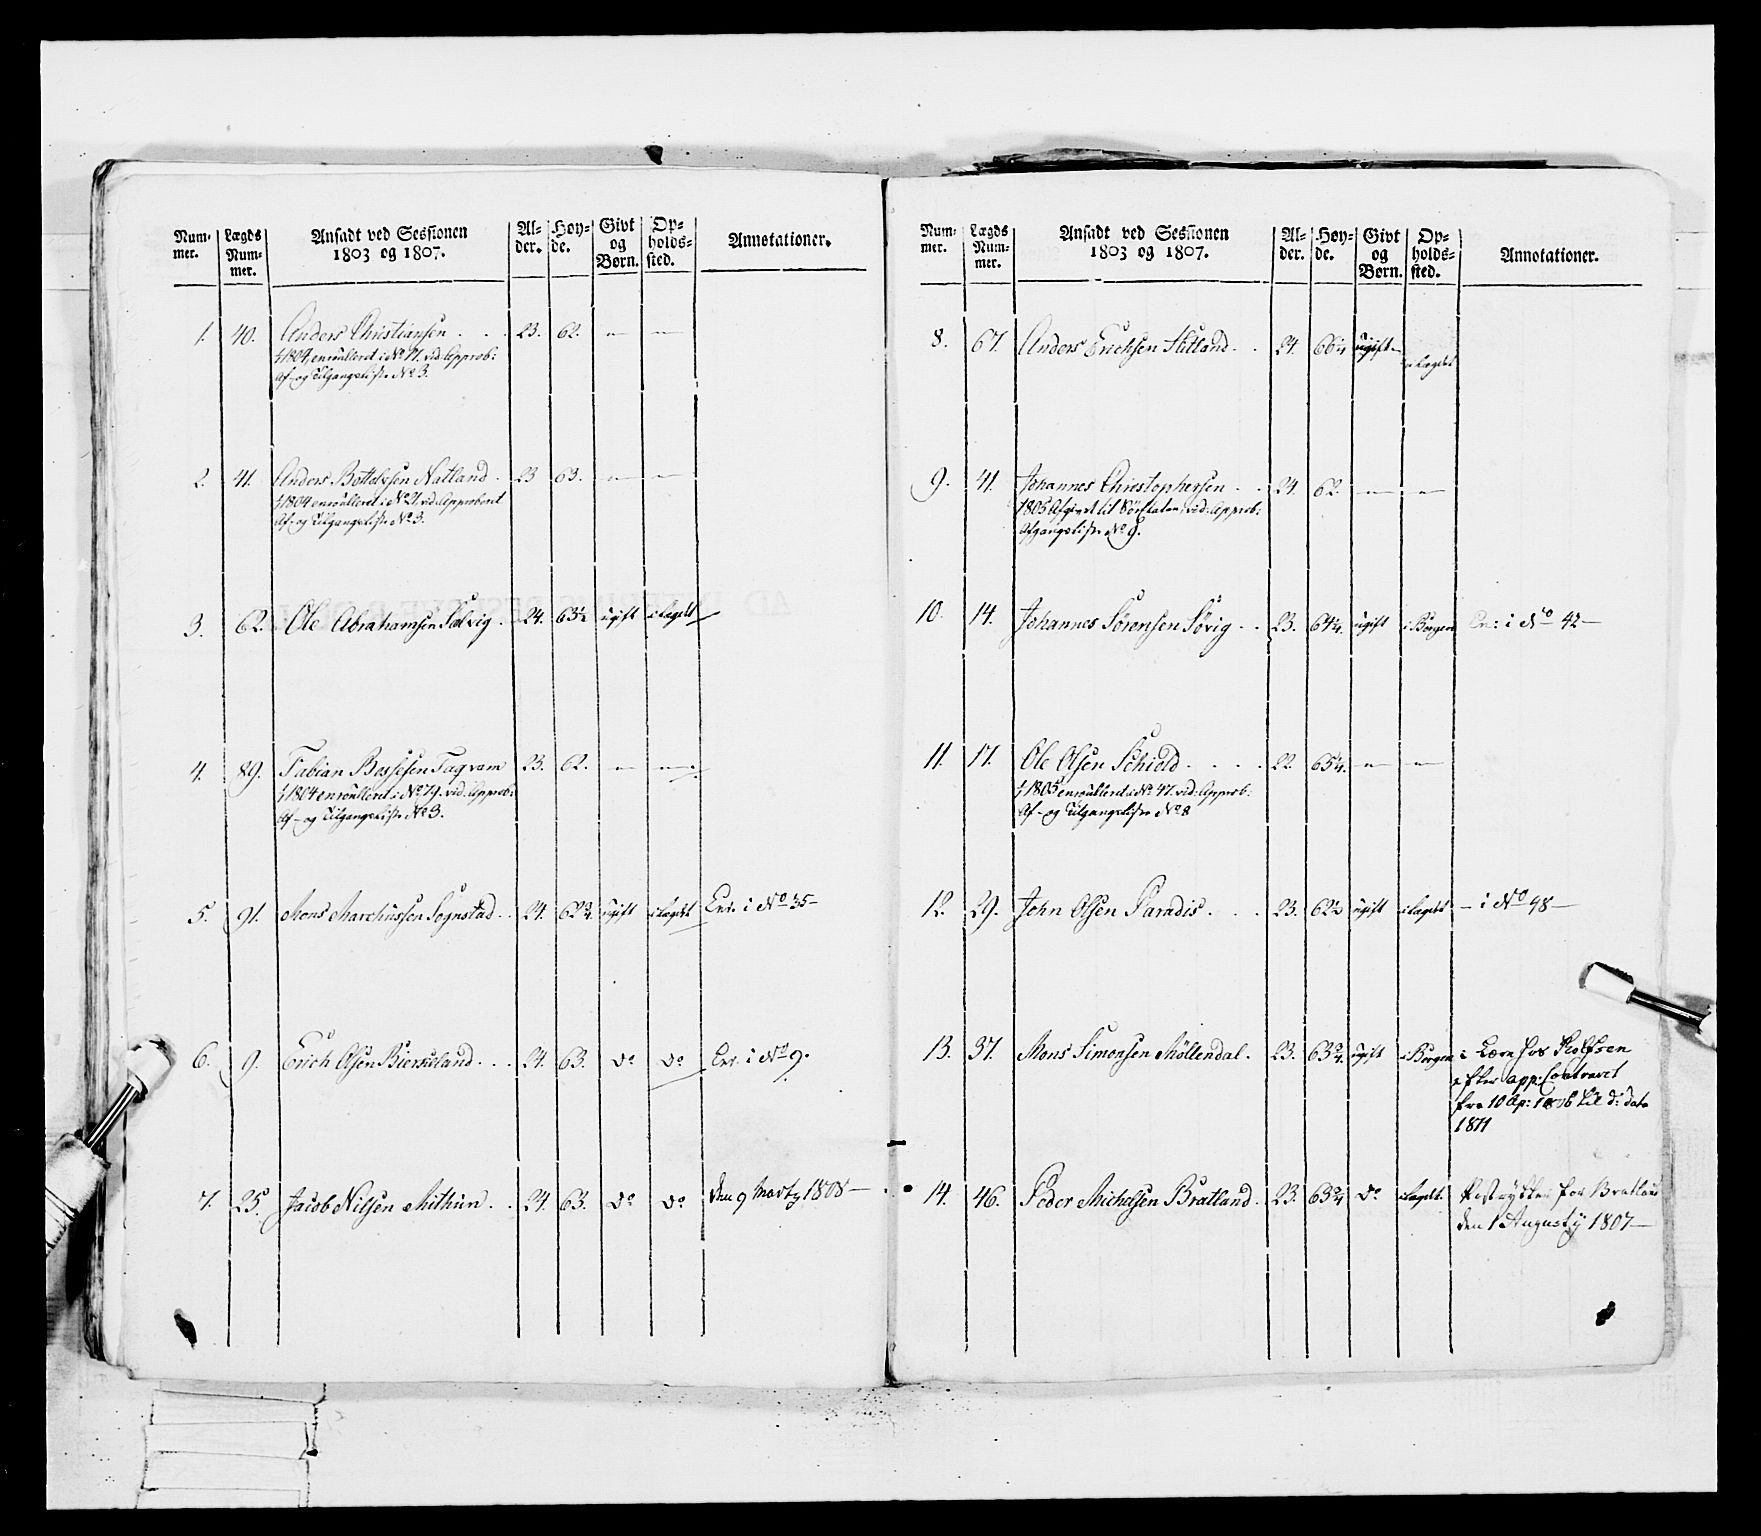 Num-mer. Lægds Num-mer. Ansadt ved Sessionen 1803 og 1807. Al-der. Høy-de. Givt og Børn. Op-holds-sted. Annotationer.
1. 40. Anders Christiansen . . . 23. 62. — —
1804 enroulleret i No 71. vid. Approb:
Af- og Tilgangsliste No 3.
2. 41. Anders Bottolvsen Natland . 23 63. — —
1804 enroulleret i No 21. vid. Approberet
Af- og Tilgangsliste No 3.
3. 62. Ole Abrahamsen Solvig . 24. 63½ ugift i Lægdt
4. 89. Fabian Bossesen Fagram 23. 62. — —
1804 enroulleret i No 79. vid. Approb:
Af- og Tilgangsliste No 3.
5. 91. Mons Marchussen Sognstad . . 24. 62¾ ugift i Lægdt Enr. i No 35—
6. 9. Erich Olsen Biersland . . . 24. 63. do do Enr. i No 9.
7. 25. Jacob Nilsen Mithun . . 24. 63. do do den 9 Marty 1808—
Num-mer. Lægds Num-mer. Ansadt ved Sessionen 1803 og 1807. Al-der. Høy-de. Givt og Børn. Op-holds-sted. Annotationer.
8. 67. Anders Erichsen Hatland . . 24. 66¼ ugift— i Lægdet
9. 41. Johannes Christophersen . . 24. 62. — —
1805 Afgivet til Søe Etaten, vid: Approb:
Afgangsliste No 9.
10. 14. Johannes Sørensen Søvig . . 23. 64¼. ugift i Bergen En: i No 42—
11. 17. Ole Olsen Schiold . . . . 22. 65¼. — —
1805 enroulleret i No 47. vid: Approb:
Af- og Tilgangsliste No 8
12. 29. John Olsen Paradis . . . 23. 62½ ugift i Lægdt — i No 98—
13. 37. Mons Simonsen Møllendal . 23. 63¾. ugift i Bergen i Lære hos
efter app: Contract
fra 10 Ap: 1806 til d: dato
1811
14. 46. Peder Michelsen Bratland . 23. 63¾ do i Lægdt. Postrytter for Bratland
den 1 Augusty 1807—